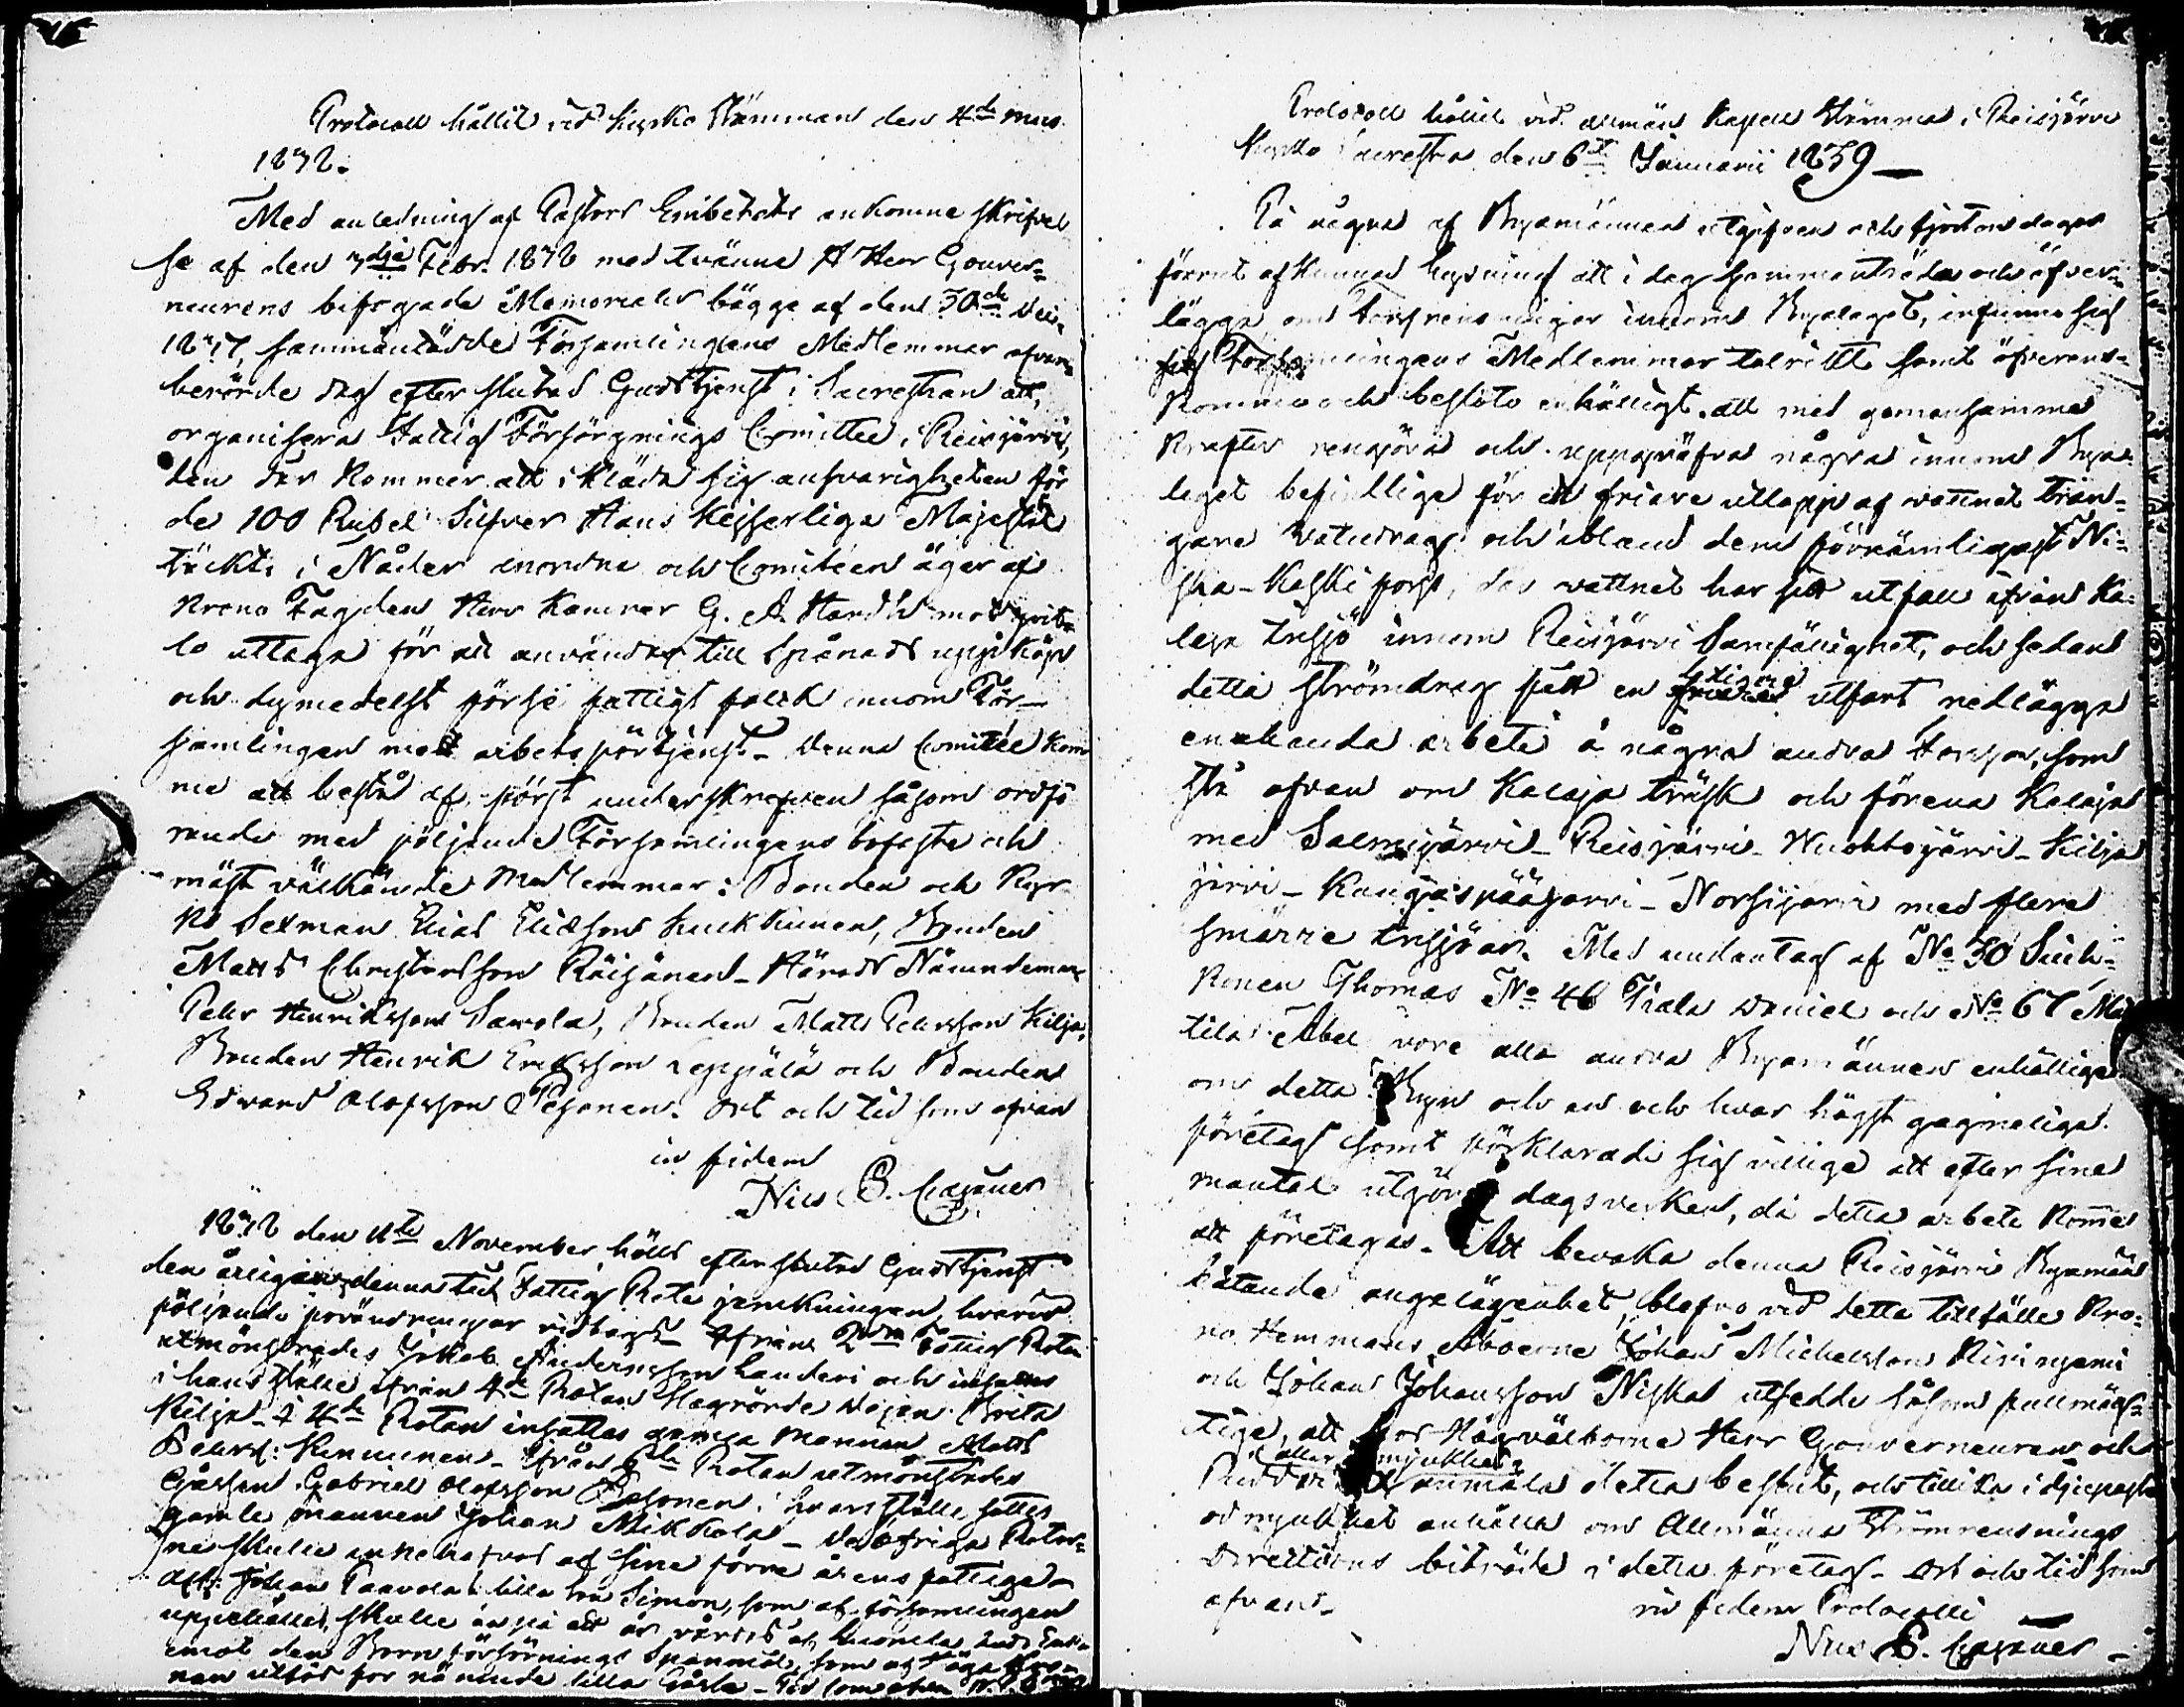 Protocoll hållit vid Kyrko Stämman den 4de Mars
1838.
Med anledning af Pastors Embetets ankomne skrifvel
se af den 7dje Febr. 1838 med tvänne H Herr Gouver-
neurens bifogade Memorialer bägge af den 30de Dec.
1837, sammanträdde Församlingens Medlemmar ofvan
berörde dag efter slutad Gudstjenst i Sacrestian att
organisera Fattig Försörgnings Comittee i Reisjärvi,
den der kommer att ikläda sig ansvarigheten för
de 100 Rubel Silfver Hans Kejserliga Majestät
täckts i Nåder anordna och Comiteen äger af
Krono Fogden Herr Kamrer G. A. Hardh mot qvit-
to uttaga för att användas till Spånads uppköp
och dymedelst förse fattigt folck innom För-
samlingen med arbets förtjenst. Denna Comitée kom
me att bestå af först underskrefven såsom ordfö
rande med följande Församlingens bofaste och
mäst välkände Medlemmar: Bonden och Kyr-
ko Sexman Elias Eliasson Kuckkunen, Bonden
Matts Christersson Räisänen - Härads Nämndeman
Pehr Henriksson Savola, Bonden Matts Pehrsson Kilja,
Bonden Henrik Eriksson Leppälä och Bonden
Edvard Olofsson Pesonen. Ort och tid som ofvan
in fidem
Nils B. Cajaner
1838 den 11te November hölls efter slutad Gudstjenst
den årigen dennastad Fattig Rote jemkningen, hvarvid
följande förändringar vidtogs - Ifrån 2dra Fattig Roten
utmönstrades Jakob Andersson Landeri och insattes
i hans ställe ifrån 4de Rotan Wagrörde Pigan Brita
Kilja - I 4de Rotan insattes gamla mannen Matts
Kinnunen - Ifrån 6te Rotan utmönstrades
Gåssen Gabriel Olofsson Pesonen i hvars ställe sattes
gamle mannen Johan Mikkola - De öfriga Rotar-
ne skulle ankehafvas af sine förre årens fattige
Johan Paavola lilla Simon, som af församlingen
uppehålles, skulle ännu ett år vårdas af
emot den Barn försörnings Spanmål, som
nan utlös för nämnde lilla Gåsse - Tid som ofvan
Protocoll hållit vid allmän Kapell Stämma i Reisjärvi
Kyrko Sacrestia den 6te Januarii 1839
På någre af Byamännen utgifven och fjorton dagar
förrut afkunnad lysning att i dag sammanträda och öfver-
lägga om forsrensningar innom Byalaget, infunno sig
sig Församlingens Medlemmar talrikt samt öfverens-
kommo och beslöto enhälligt att med gemensamma
krafter rengöra och uppgräfva några innom Bya
laget befindtliga för ett friare utlopp af wattnet trån-
gare Vatudrag och ibland dem förnämligast Ni-
ska-Koski fors, der wattnet har sitt utfall ifrån Ka-
laja Insjö innom Reisjärvi Samfällighet, och sedan
detta strömdrag fått en stigare friare utfart nedlägga
enahanda arbete å några andra forssar, som
stå ofvan om Kalaja träsk och förena Kalaja
med Salmijärvi - Reisjärvi - Wuohtojärvi - Kilja
järvi - Kangaspääjärvi - Norssijärvi med flera
smärre Insjöar. Med undantag af No 30 Suih-
konen Thomas No 46 Tiala Daniel och No 67 Mat
tila Abel vore alla andra Byamännen enhällige
om detta Byn och en och hvar högst gagneliga
företag samt förklarade sig villige att efter sine
mantal utgöra dagsverken, då detta arbete komme
att företagas. Att bevaka denna Reisjärvi Byamäns
båtande angelägenhet, blefvo vid detta tillfälle Kro-
no Hemmans Åboerne Johan Michelsson Kiviniemi
och Johan Johansson Niska utsedde såsom fullmäg-
tige, att hos Högvälborne Herr Gouverneuren och
Riddaren i aller ödmjukhet anmäla detta beslut, och tillika i djupaste
ödmjukhet anhålla om Allmänna Strömrensnings
Directions biträde i detta företag. Ort och tid som
ofvan.
in fidem Protocolli
Nils B. Cajaner